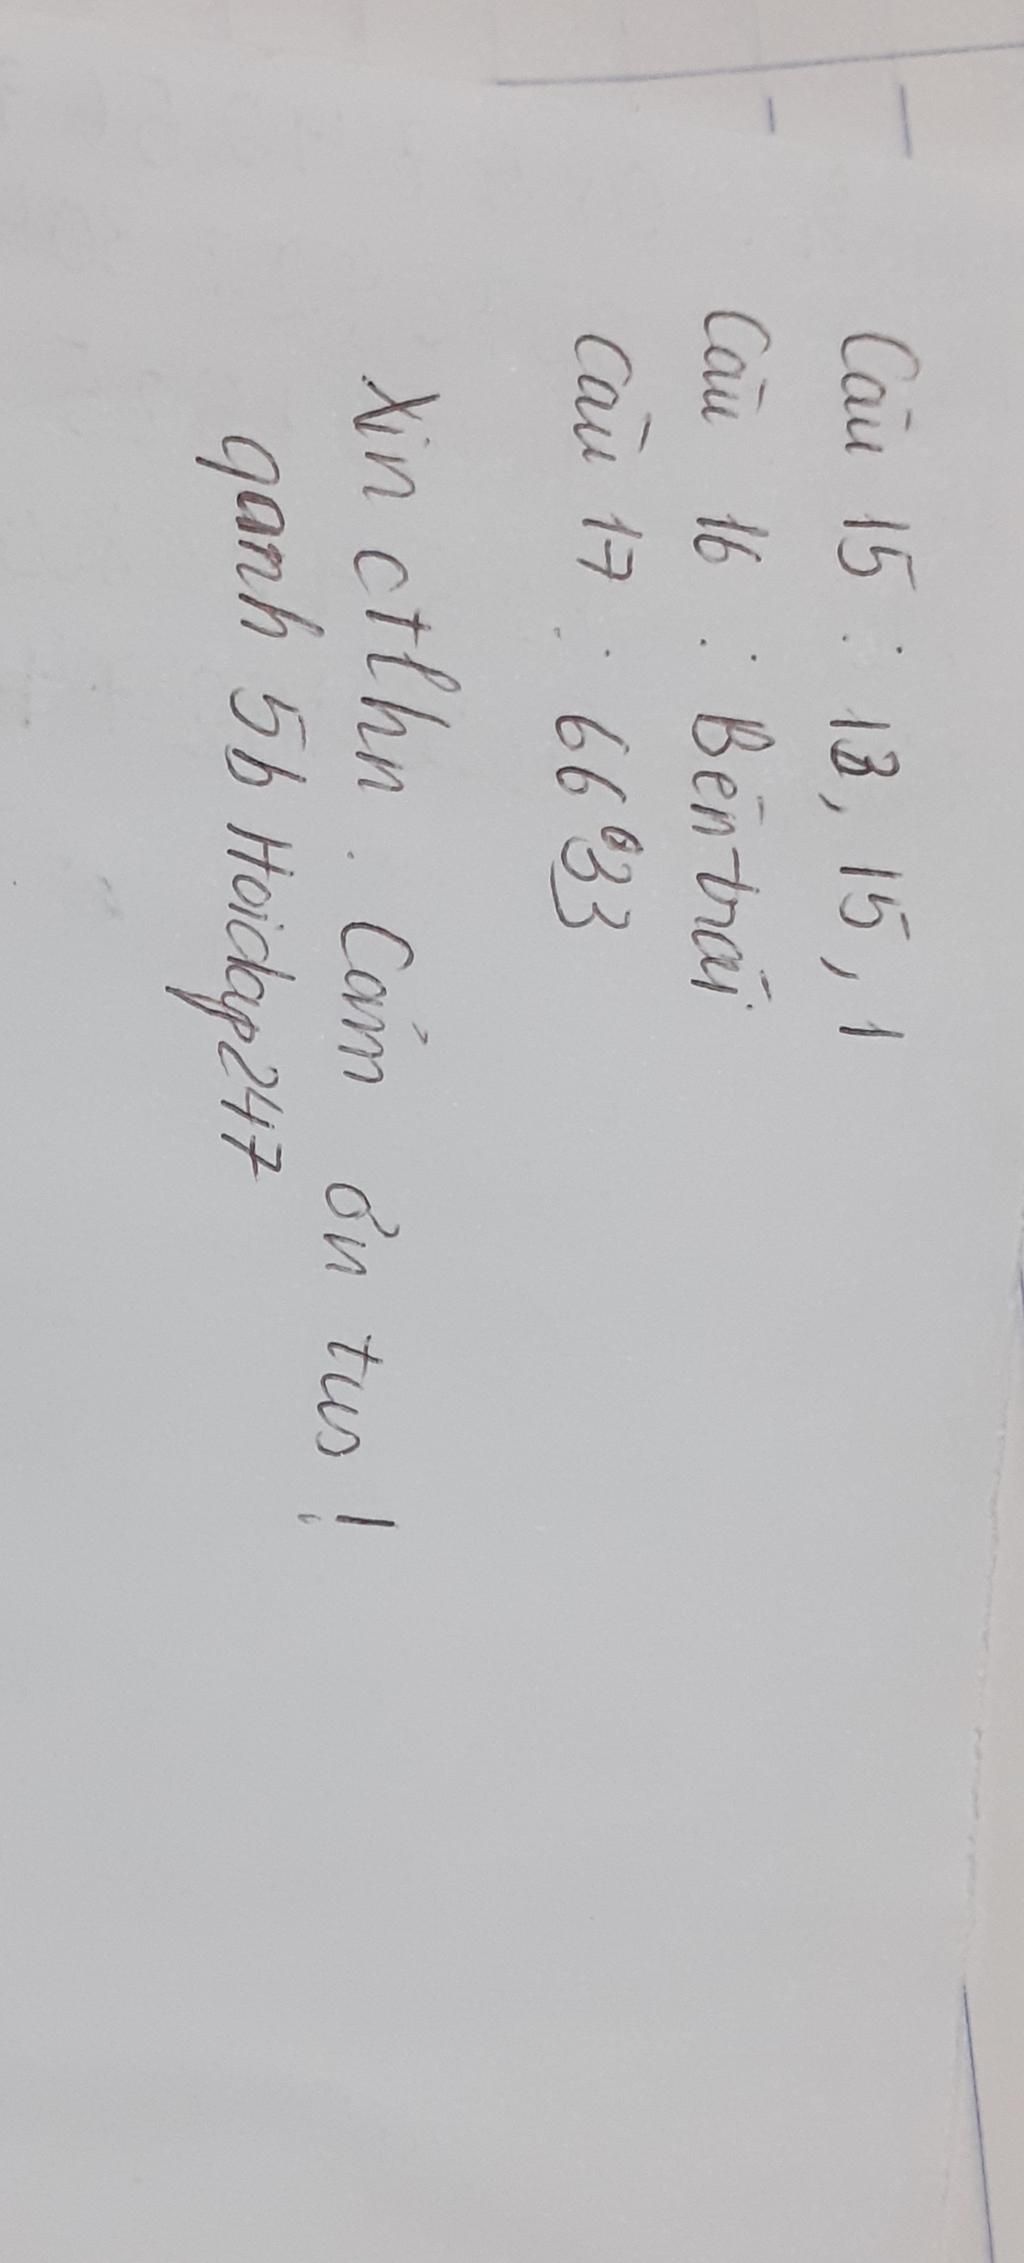 Câu 15 : 13, 15, 1
Câu 16 : Bên trái
Câu 17 : 6633
Xin ctlhn . Cảm ơn tus !
qanh 5b Hoidap247